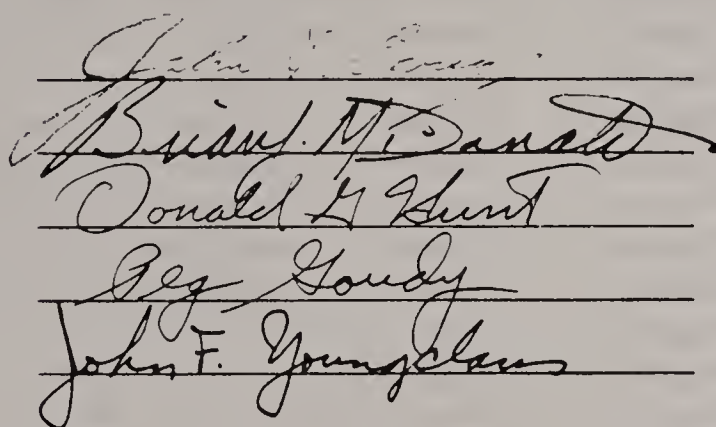 John
Brian J. McDonald
Donald G Hunt
Peg Goudy
John F. Youngclaus